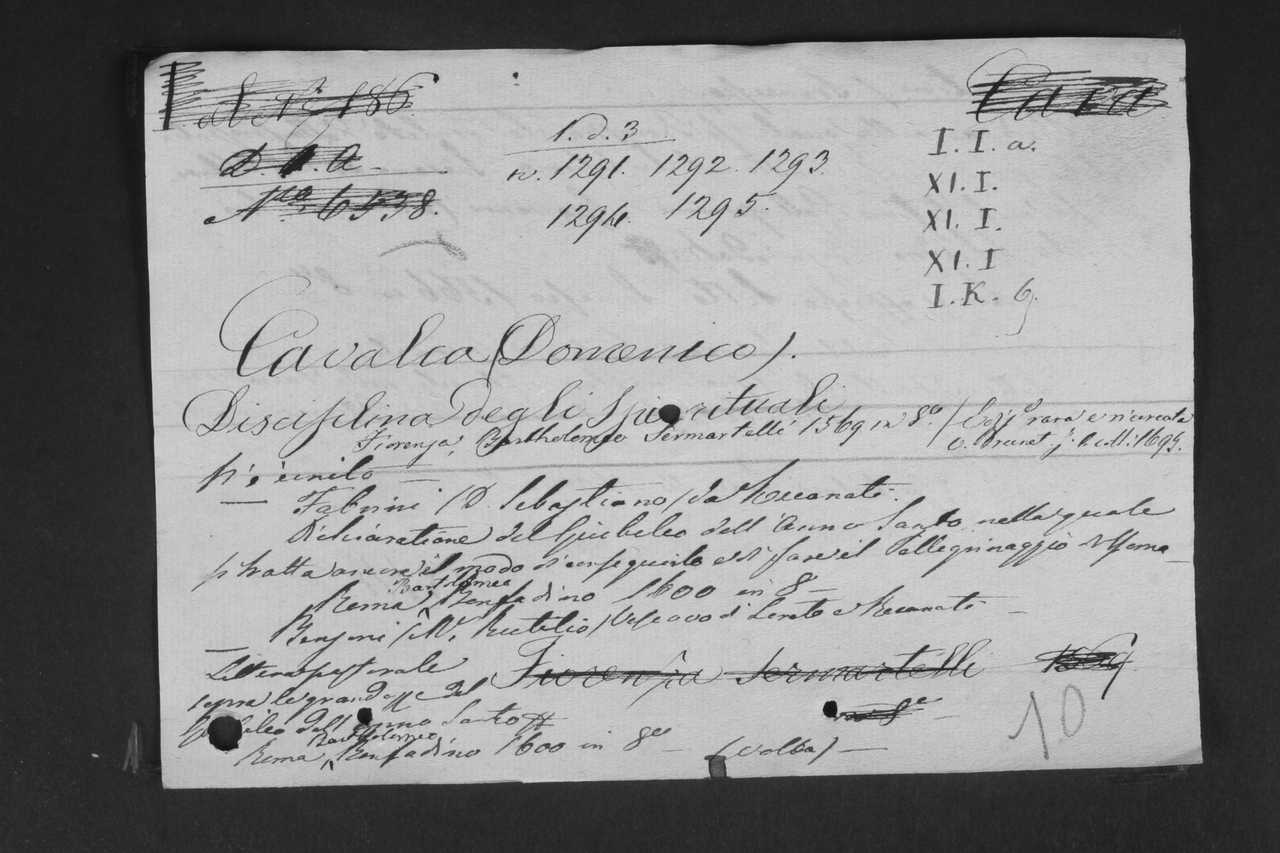 D. 1. A
N.ro 6538.
1. d. 3
n. 1291. 1292. 1293.
1294. 1295.
I. I. a.
XI. I.
XI. I.
XI. I
I. K. 6.
Cavalca (Domenico).
Disciplina degli Spirituali
Fiorenza, Bartholomeo Sermartelli 1569 in 8.o / Ediz.e rara e ricercata
v. Brunet 1695.
vi è unito —
Fabrini (D. Sebastiano) da Recanati.
Dichiaratione del Giubileo dell'Anno Santo, nella quale
si tratta ancora il modo di conseguirlo e di fare il Pellegrinaggio di Roma —
Roma Bartolomeo Bonfadino 1600 in 8.o —
Benzoni (M.r Rutilio) Vescovo di Loreto e Recanati —
Littera pastorale
sopra le grandezze del
Giubileo dell'Anno Santo
Roma, Bartholomeo Bonfadino 1600 in 8.o — (volta) —
Fiorenza Sermartelli 1569
in 8.o —
10